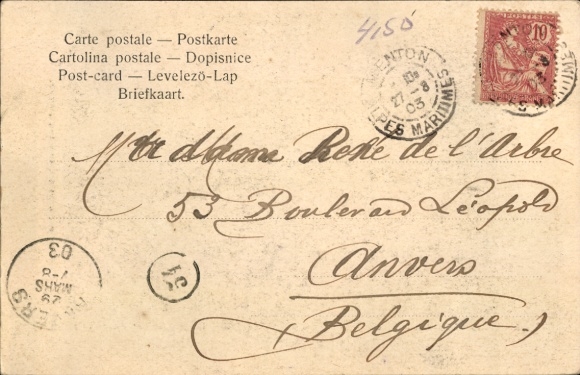 Carte postale — Postkarte
Cartolina postale — Dopisnice
Post-card — Levelezö-Lap
Briefkaart.
4,50
MENTON
27 -8
03
ALPES MARITIMES
POSTES
10
Mr & Mme René de l'Arbre
53 Boulevard Léopold
Anvers
(Belgique.)
ANVERS
29
MARS
7-8
03